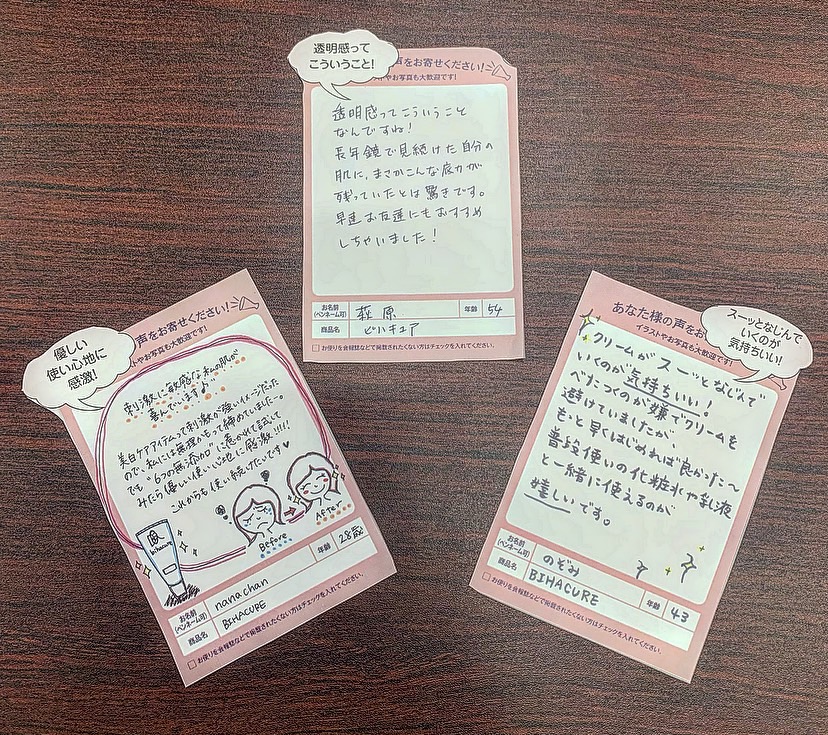 透明感って
こういうこと!
声をお寄せください!
ストやお写真も大歓迎です!
透明感ってこういうこと
なんですね!
長年鏡で見続けた自分の
肌に、まさかこんな底力が
残っていたとは驚きです。
早速お友達にもおすすめ
しちゃいました!
お名前
(ペンネーム可)
萩原
年齢
54
商品名
ビハキュア
お便りを会報誌などで掲載されたくない方はチェックを入れてください。
優しい
使い心地に
感激!
声をお寄せください!
トやお写真も大歓迎です!
刺激に敏感な私の肌が
喜んでいます♪
美白ケアアイテムって刺激が強いイメージだった
ので、私には無理かもって諦めていました…。
でも"6つの無添加"に惹かれて試して
みたら優しい使い心地に感激!!!!
これからも使い続けたいです♥
bihacure
Before
After
お名前
(ペンネーム可)
nanachan
年齢
28歳
商品名
BIHACURE
お便りを会報誌などで掲載されたくない方はチェックを入れてください。
あなた様の声をお
イラストやお写真も大歓
スーッとなじんで
いくのが
気持ちいい!
クリームがスーッとなじんで
いくのが気持ちいい!
べたつくのが嫌でクリームを
避けていましたが、
もっと早くはじめれば良かった〜
普段使いの化粧水や乳液
と一緒に使えるのが
嬉しいです。
お名前
(ペンネーム可)
のぞみ
年齢
43
商品名
BIHACURE
お便りを会報誌などで掲載されたくない方はチェックを入れてください。